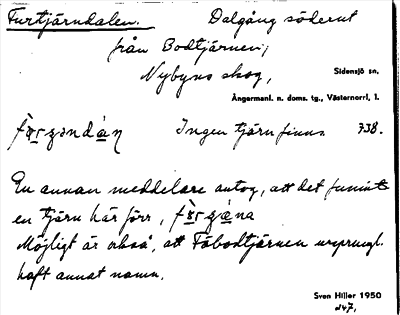 Furtjärndalen. Dalgång söderut
från Bodtjärnen;
Nybyns skog, Sidensjö sn.
Ångermanl. n. doms. tg., Västernorrl. l.
Ingen tjärn finns. 738.
En annan meddelare antog, att det funnits
en tjärn här förr,
Möjligt är också, att Fäbodtjärnen ursprungl.
haft annat namn.
Sven Hiller 1950